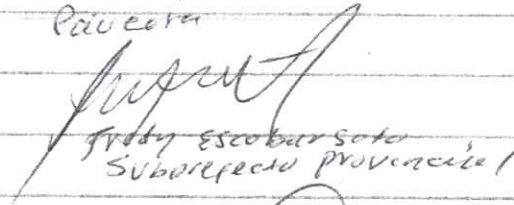 Paucara
Fredy Escobar Soto
Subprefecto provincial